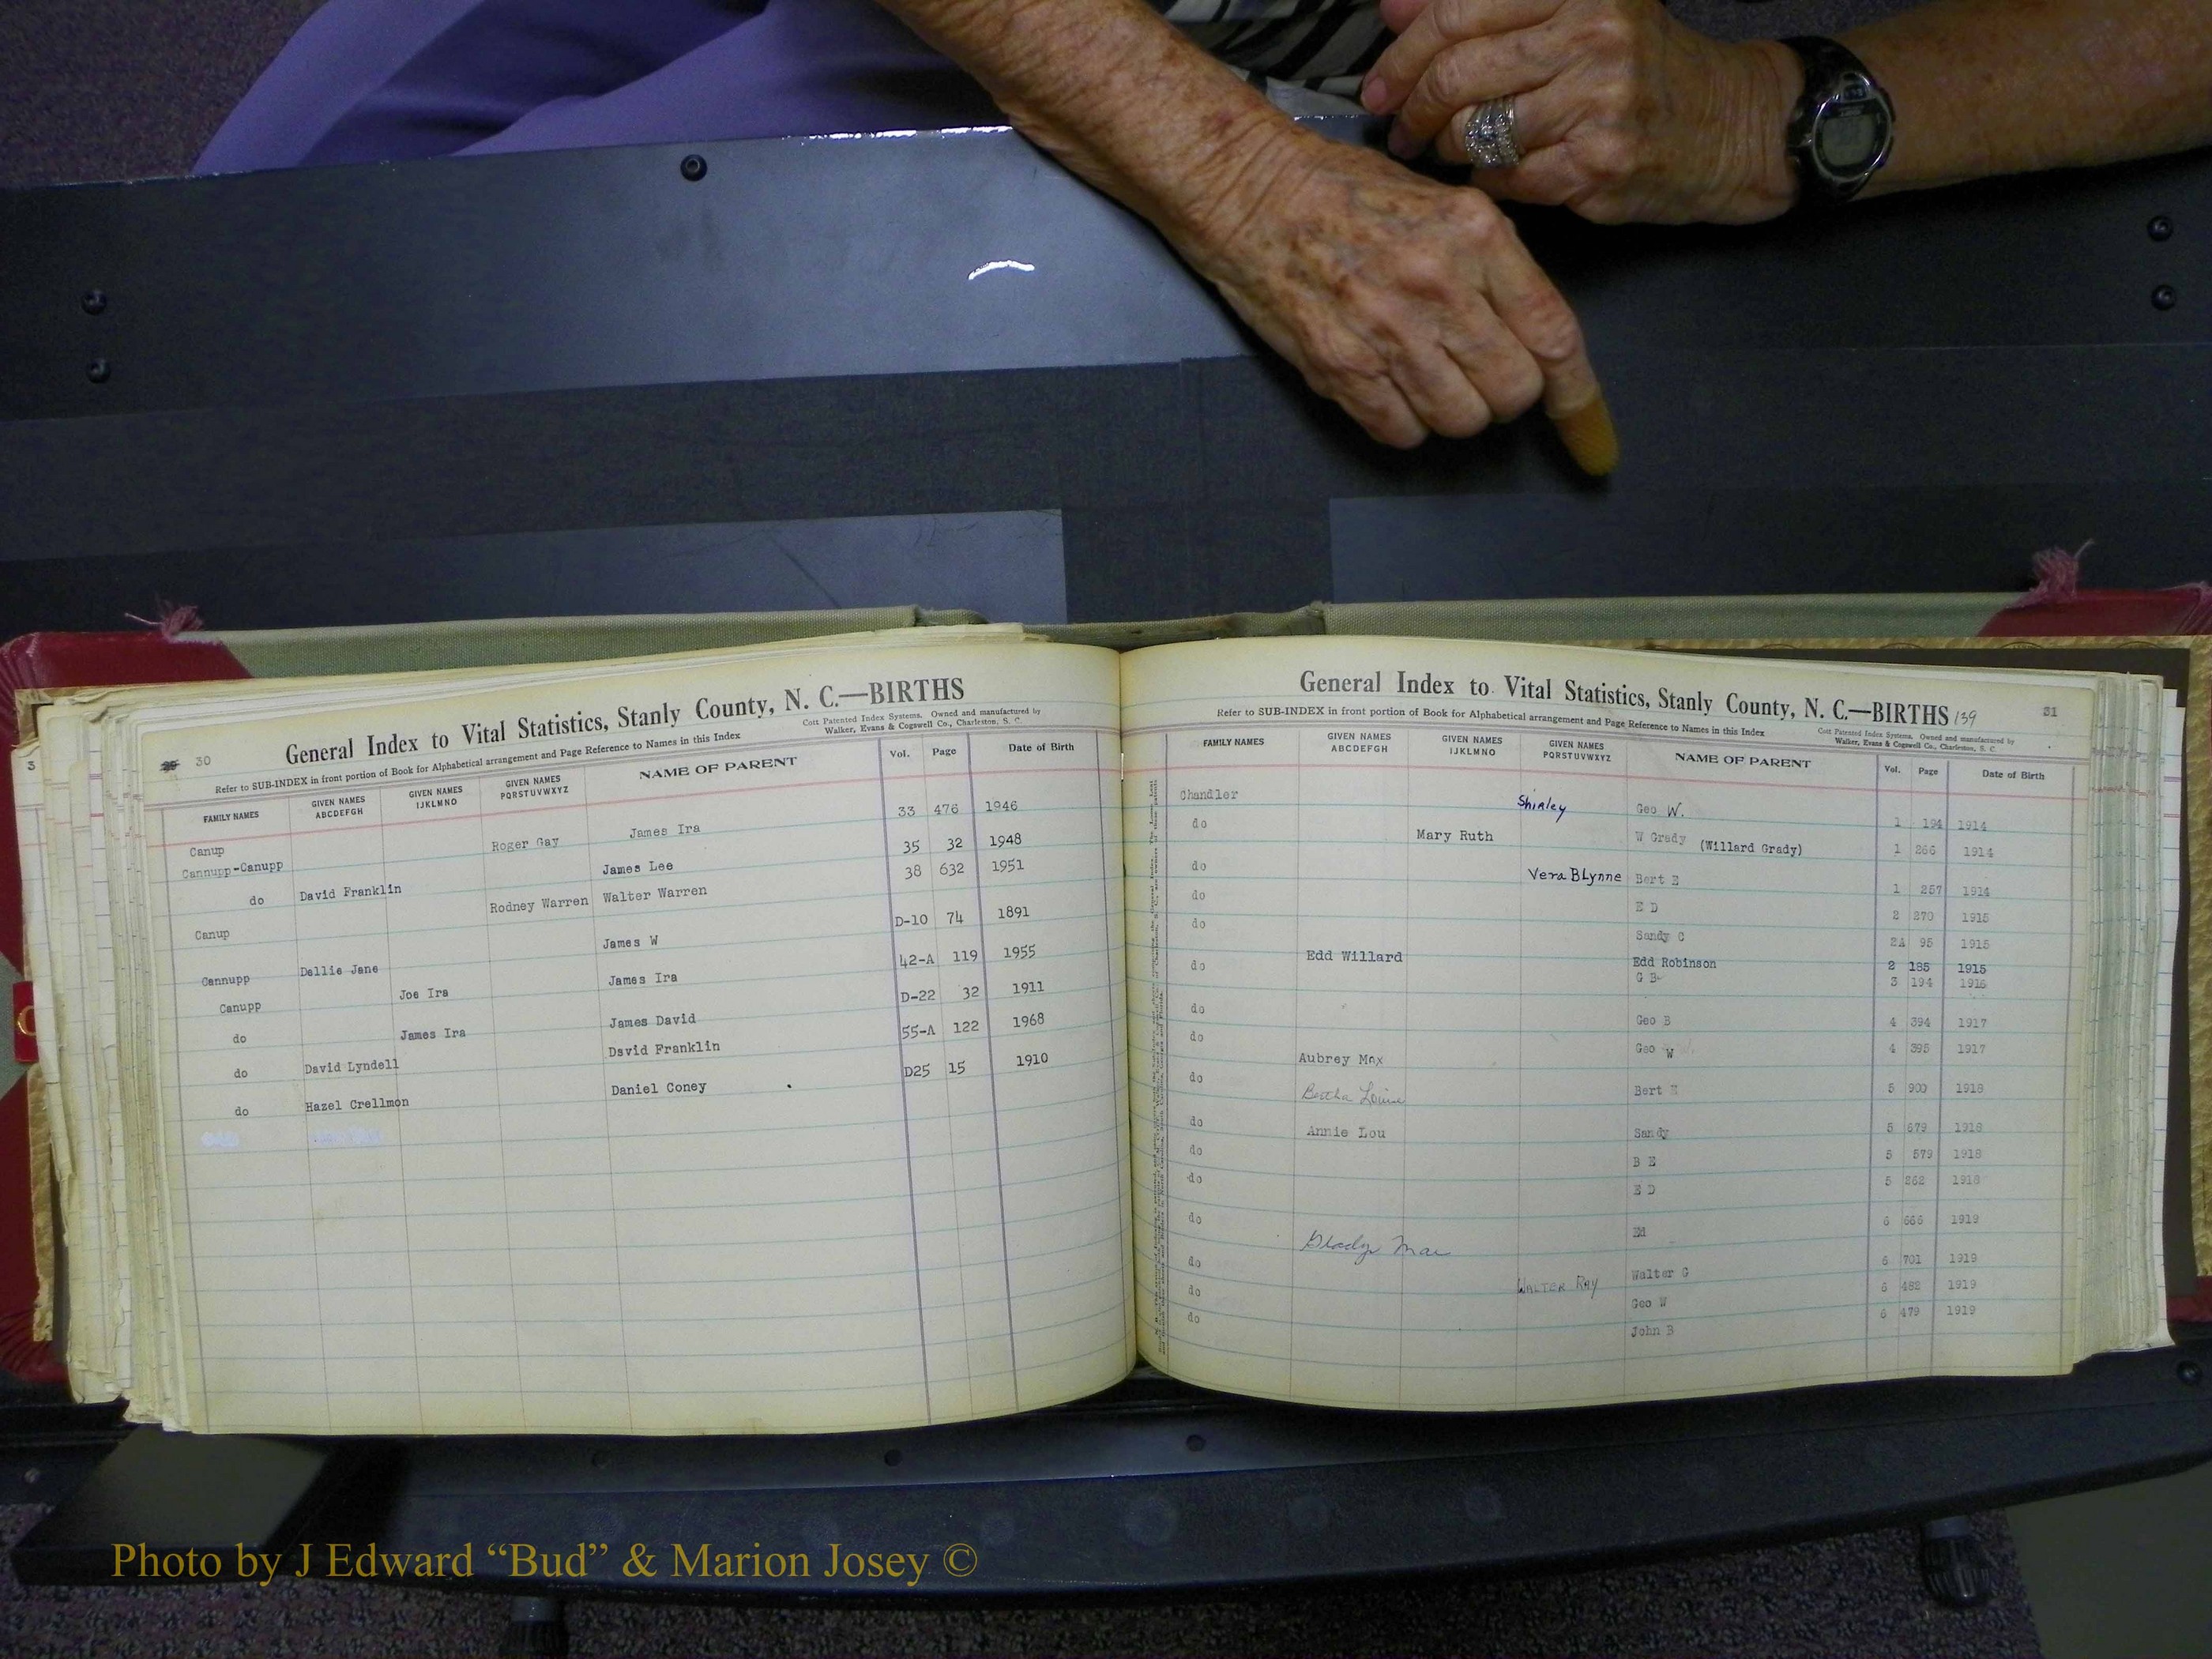 30
General Index to Vital Statistics, Stanly County, N. C.—BIRTHS
Refer to SUB-INDEX in front portion of Book for Alphabetical arrangement and Page Reference to Names in this Index
Cott Patented Index Systems. Owned and manufactured by
Walker, Evans & Cogswell Co., Charleston, S. C.
FAMILY NAMES GIVEN NAMES ABCDEFGH GIVEN NAMES IJKLMNO GIVEN NAMES PQRSTUVWXYZ NAME OF PARENT Vol. Page Date of Birth
Canup Roger Gay James Ira 33 476 1946
Cannupp-Canupp James Lee 35 32 1948
do David Franklin Walter Warren 38 632 1951
Canup Rodney Warren James W D-10 74 1891
Cannupp Dellie Jane James Ira 42-A 119 1955
Canupp Joe Ira James David D-22 32 1911
do James Ira David Franklin 55-A 122 1968
do David Lyndell Daniel Coney D25 15 1910
do Hazel Crellmon
31
General Index to Vital Statistics, Stanly County, N. C.—BIRTHS 139
Refer to SUB-INDEX in front portion of Book for Alphabetical arrangement and Page Reference to Names in this Index
Cott Patented Index Systems. Owned and manufactured by
Walker, Evans & Cogswell Co., Charleston, S. C.
FAMILY NAMES GIVEN NAMES ABCDEFGH GIVEN NAMES IJKLMNO GIVEN NAMES PQRSTUVWXYZ NAME OF PARENT Vol. Page Date of Birth
Chandler Shirley Geo W. 1 194 1914
do Mary Ruth W Grady (Willard Grady) 1 266 1914
do Vera Blynne Bert E 1 257 1914
do E D 2 270 1915
do Sandy C 2A 95 1915
Edd Willard Edd Robinson 2 185 1915
do G B 3 194 1916
do Geo B 4 394 1917
do Geo W 4 395 1917
Aubrey Max
do Bertha Louise Bert E 5 900 1918
do Annie Lou Sandy 5 679 1918
do B E 5 579 1918
do E D 5 262 1918
do Ed 6 666 1919
do Gladys Mae Walter G 6 701 1919
do Walter Ray Geo W 6 482 1919
do John B 6 479 1919
Photo by J Edward “Bud” & Marion Josey ©